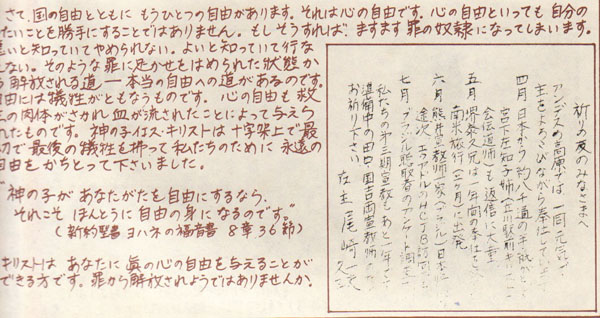 さて、国の自由とともに もうひとつの自由があります。それは心の自由です。心の自由といっても 自分の
たいことを勝手にすることではありません。もしそうすれば、ますます罪の奴隷になってしまいます。
いと知っていてやめられない。よいと知っていて行な
えない。そのような罪に足かせをはめられた状態か
ら 解放される道 ― 本当の自由への道があるのです。
自由には犠牲がともなうものです。心の自由も 救
主の肉体がさかれ 血が流されたことによって与えら
れたものです。神の子イエス・キリストは 十字架上で 最
で最後の犠牲を拂って 私たちのために 永遠の
自由をかちとって下さいました。
"神の子が あなたがたを自由にするなら、
それこそ ほんとうに自由の身になるのです。"
(新約聖書 ヨハネの福音書 8章36節)
キリストは あなたに 眞の心の自由を与えることが
できる方です。罪から解放されようではありませんか。
祈りの友のみなさまへ
アンデスの高原では 一同元気で
主をよろこびながら奉仕しています
四月 日本から 約八千通の手紙が
宮下左知子姉
会伝道師 も 返信に大童
五月 堺泰久兄は 一年間の奉仕を
南米旅行(一ヶ月)に出発
六月 熊井宣教師家(ブラジル) 日本に
途次 エクアドルのHCJB訪問
七月 ブラジル聴取者のアンケート調査
私たちの第三期宣教も あと一年
準備中の田口・国吉両宣教師の
お祈り下さい
在主 尾崎一夫
久子